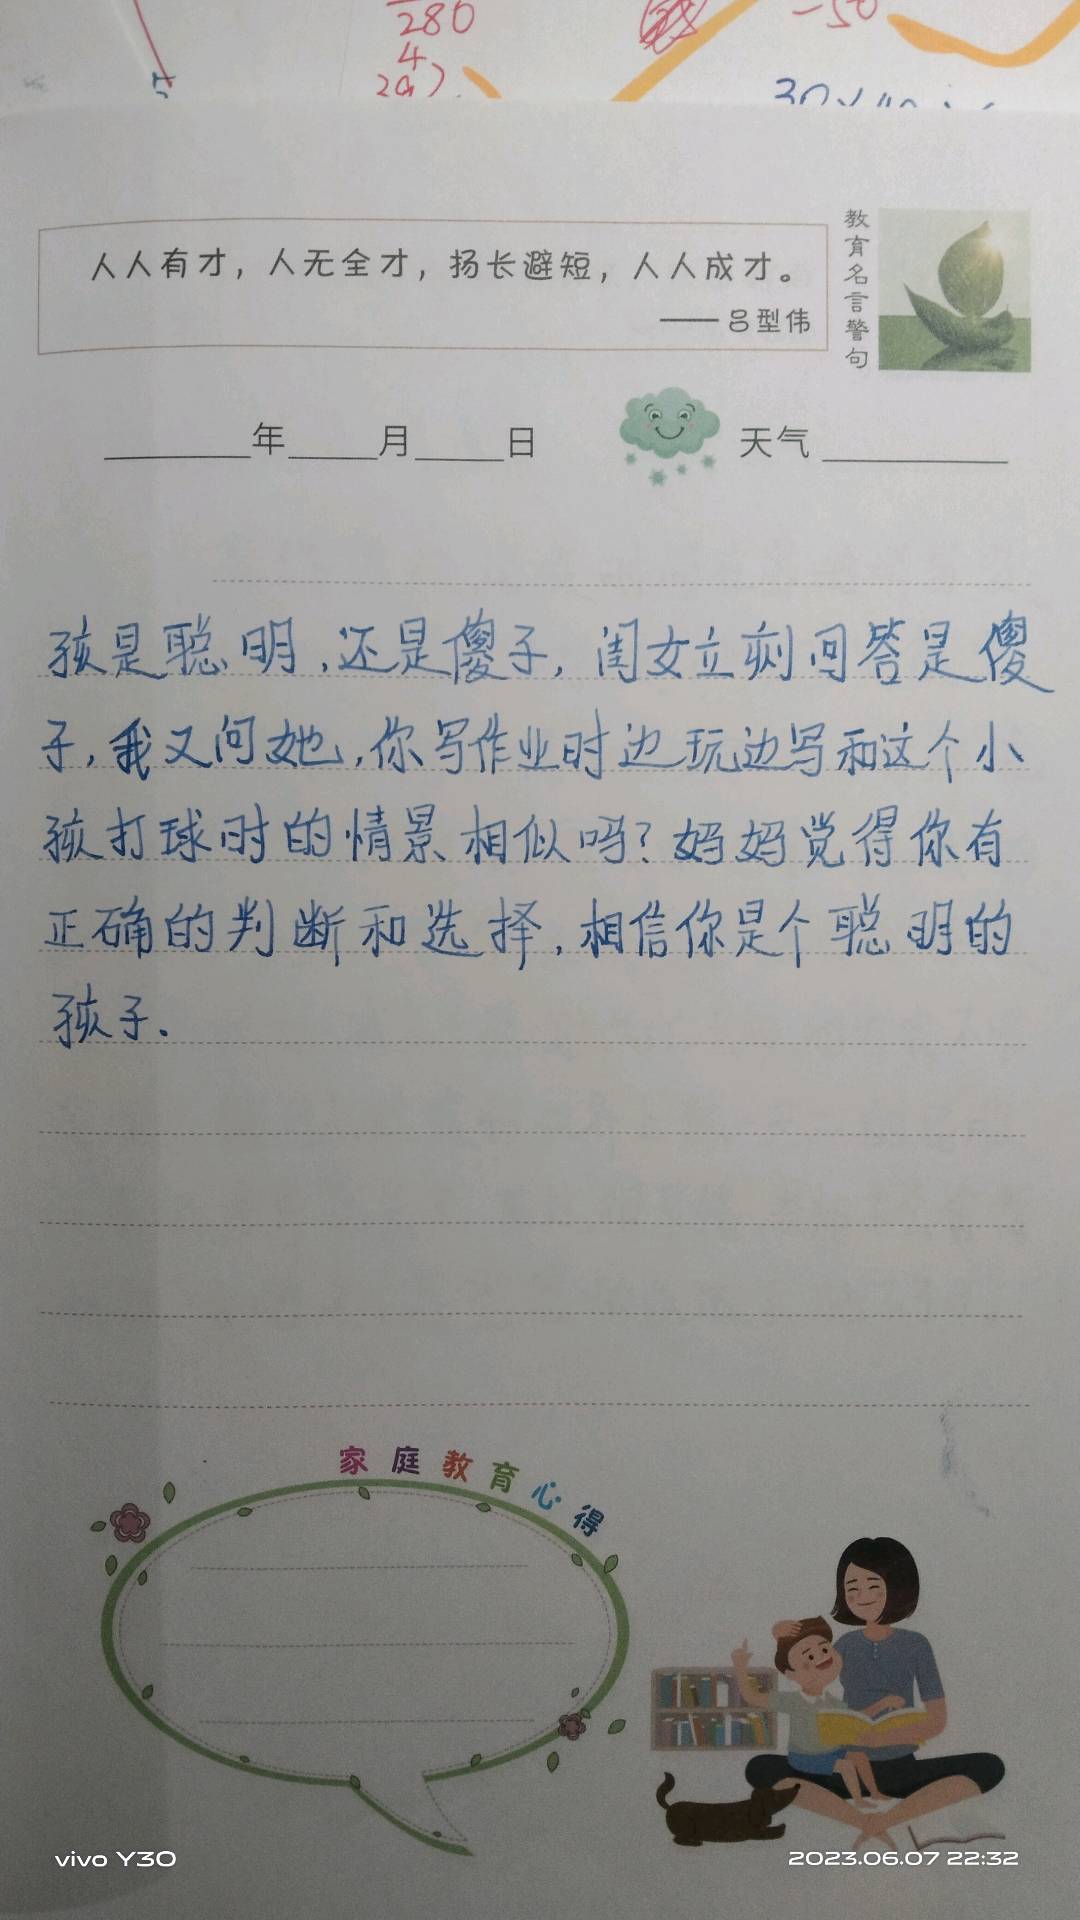 280
4
-50
人人有才，人无全才，扬长避短，人人成才。
—— 吕型伟
教育名言警句
年 月 日 天气
孩是聪明,还是傻子,闺女立刻回答是傻
子,我又问她,你写作业时边玩边写和这个小
孩打球时的情景相似吗?妈妈觉得你有
正确的判断和选择,相信你是个聪明的
孩子.
家庭教育心得
vivo Y30
2023.06.07 22:32